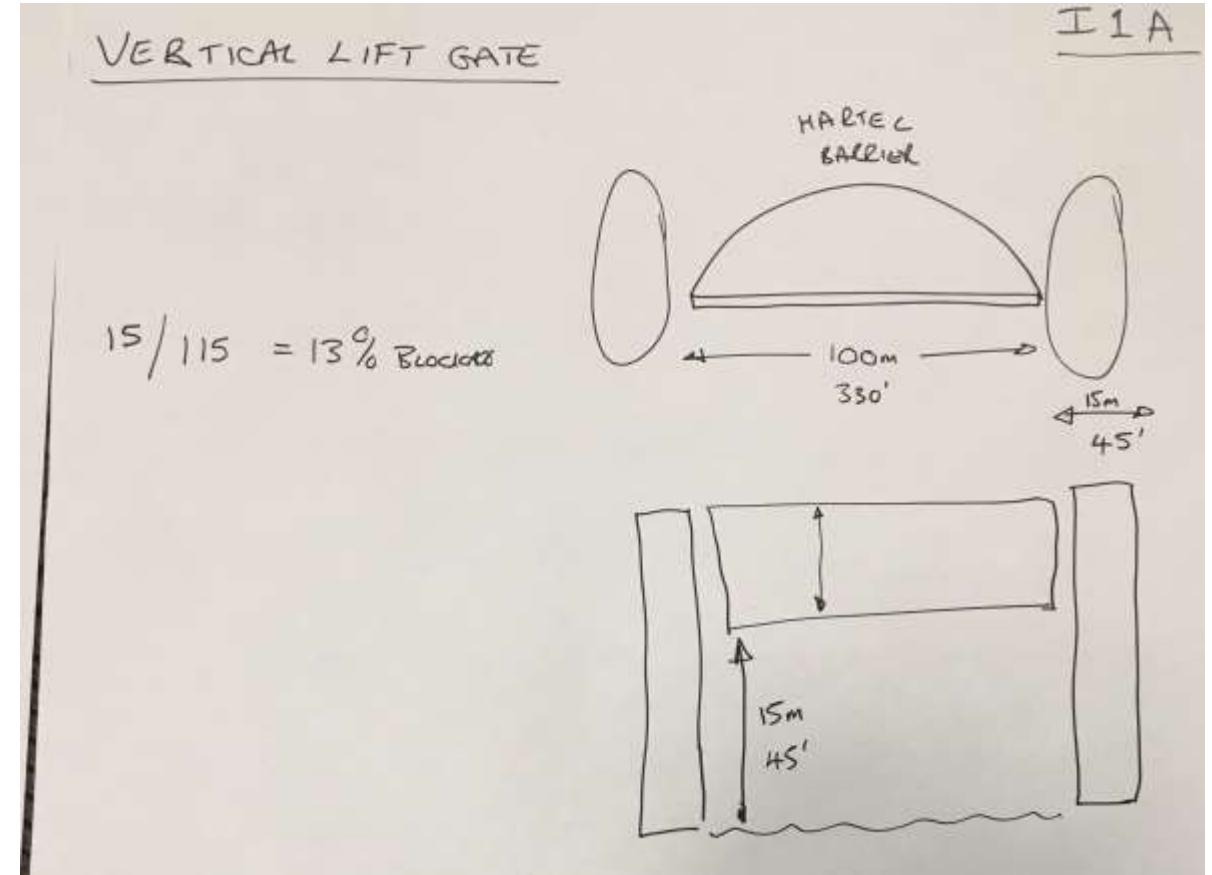 VERTICAL LIFT GATE
I1A
HARTEL
BARRIER
15/115 = 13%
100m
330'
15m
45'
15m
45'